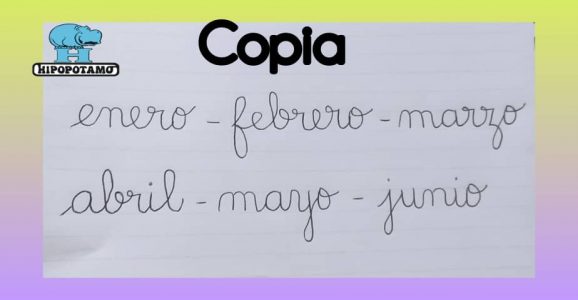 Copia
HIPOPOTAMO
enero - febrero - marzo
abril - mayo - junio